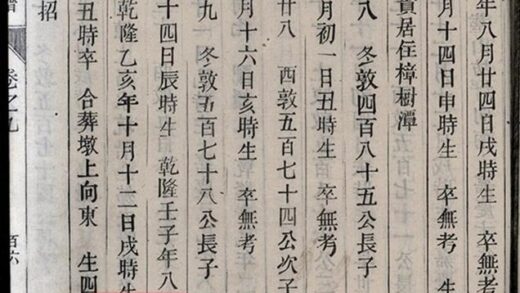 年八月廿四日戌時生 卒無考
月十四日申時生 卒無考 生
貴居住樟樹潭
八 冬敦四百八十五公長子
月初一日丑時生 卒無考
廿八 西敦五百七十四公次子
月十六日亥時生 卒無考
九 冬敦五百七十八公長子
十四日辰時生 乾隆壬子年八
乾隆乙亥年十月十二日戌時生
丑時卒 合葬墩上向東 生四
招
譜 卷之九 百六